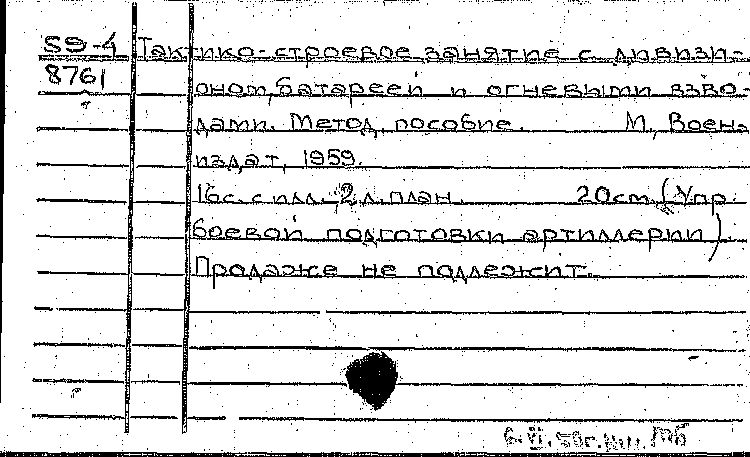 59-4 Тактико-строевое занятие с дивизи-
8761 оном, батареей и огневыми взво-
дами. Метод. пособие. М., Воен-
издат, 1959.
16 с. с илл., 2 л. план. 20cm (Упр.
боевой подготовки артиллерии).
Продаже не подлежит.